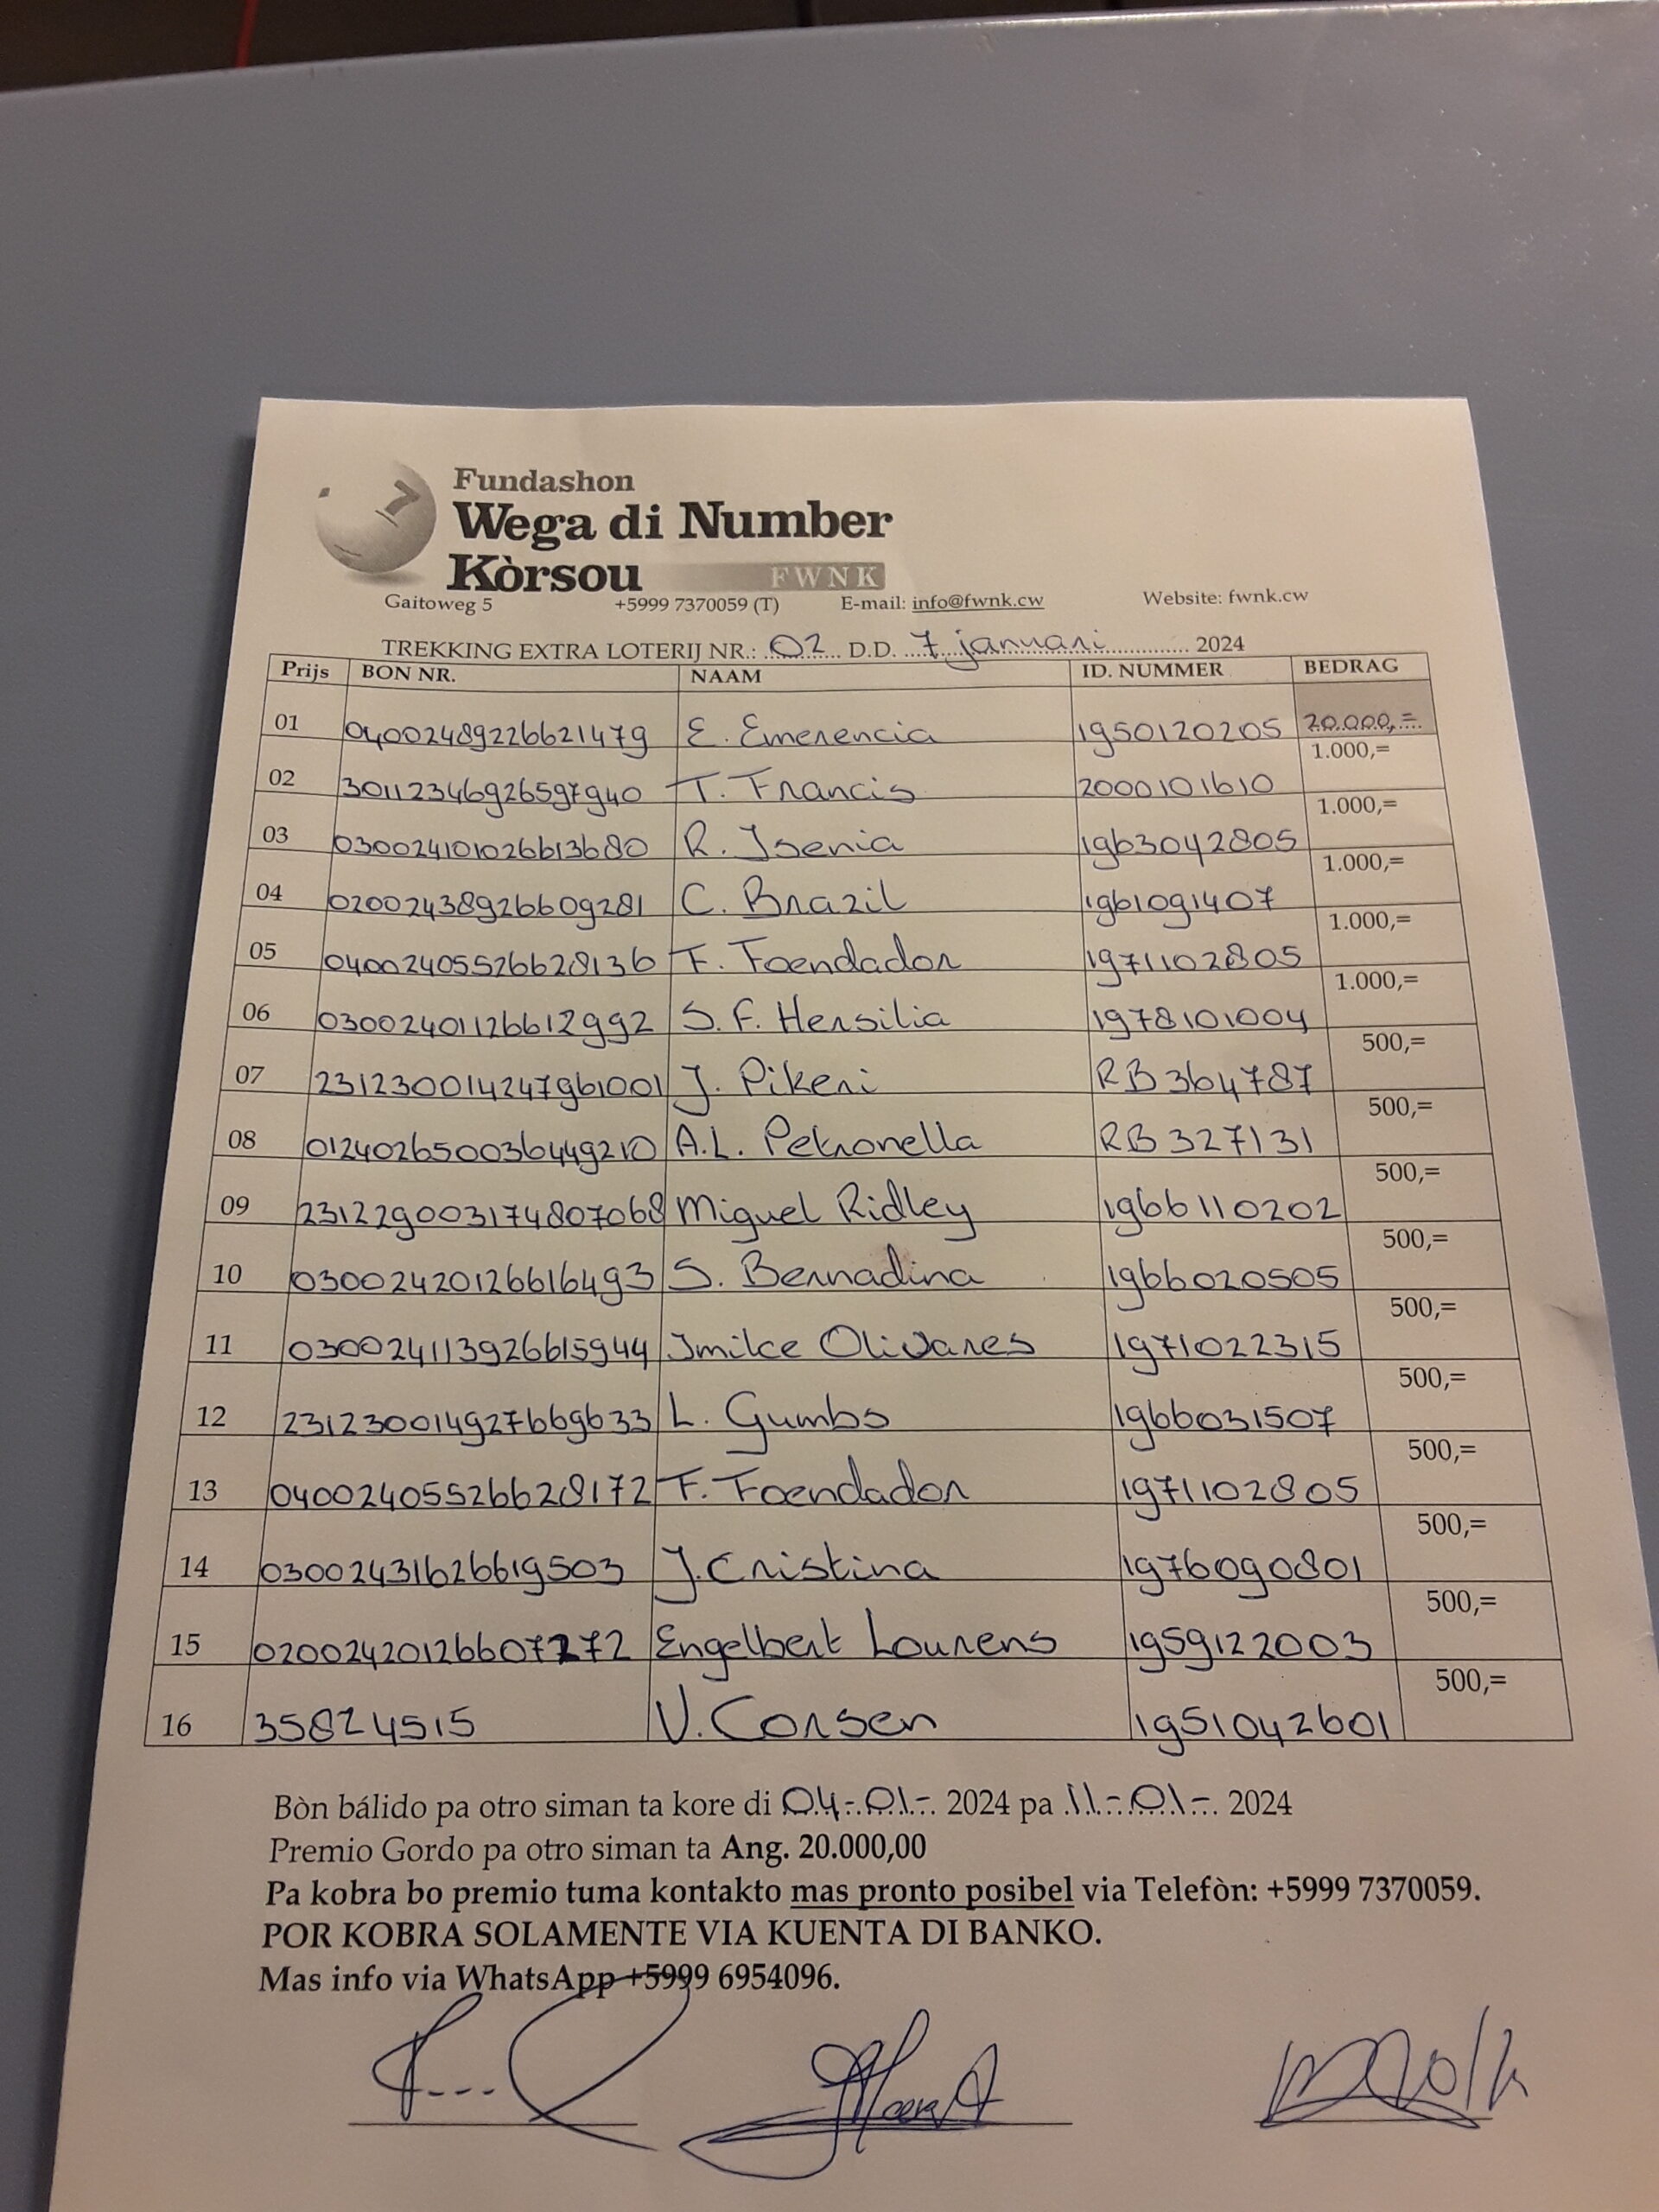 7
Fundashon
Wega di Number
Kòrsou FWNK
Gaitoweg 5 +5999 7370059 (T) E-mail: info@fwnk.cw Website: fwnk.cw
TREKKING EXTRA LOTERIJ NR.: 02 D.D. 7 januari 2024
Prijs BON NR. NAAM ID. NUMMER BEDRAG
01 04002489226621479 E. Emerencia 1950120205 20.000,=
02 30112346926597940 T. Francis 2000101610 1.000,=
03 030024101026613680 R. Isenia 1963042805 1.000,=
04 02002438926609281 C. Brazil 1961091407 1.000,=
05 04002405526628136 F. Foendador 1971102805 1.000,=
06 03002401126612992 S.F. Hersilia 1978101004 1.000,=
07 231230014247961001 J. Pikeri RB364787 500,=
08 012402650036449210 A.L. Petronella RB327131 500,=
09 231229003174807068 Miguel Ridley 1966110202 500,=
10 03002420126616493 S. Bernadina 1966020505 500,=
11 030024113926615944 Imilce Olivares 1971022315 500,=
12 231230014927669633 L. Gumbs 1966031507 500,=
13 04002405526628172 F. Foendador 1971102805 500,=
14 03002431626619503 J. Cristina 1976090801 500,=
15 02002420126607272 Engelbert Lourens 1959122003 500,=
16 35824515 V. Corsen 1951042601 500,=
Bòn bálido pa otro siman ta kore di 04-01- 2024 pa 11-01- 2024
Premio Gordo pa otro siman ta Ang. 20.000,00
Pa kobra bo premio tuma kontakto mas pronto posibel via Telefòn: +5999 7370059.
POR KOBRA SOLAMENTE VIA KUENTA DI BANKO.
Mas info via WhatsApp +5999 6954096.